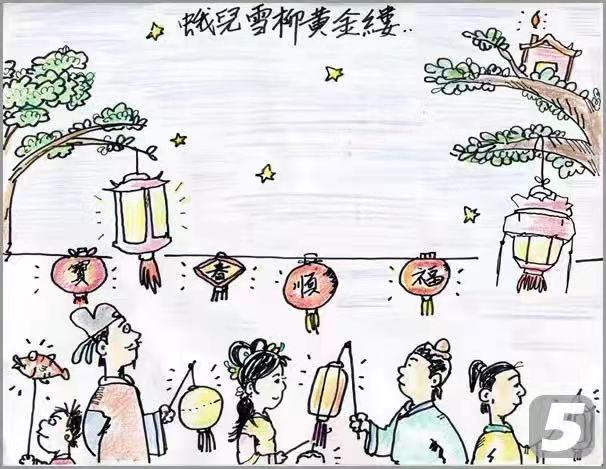 蛾兒雪柳黄金縷..
寶 春 順 福
5